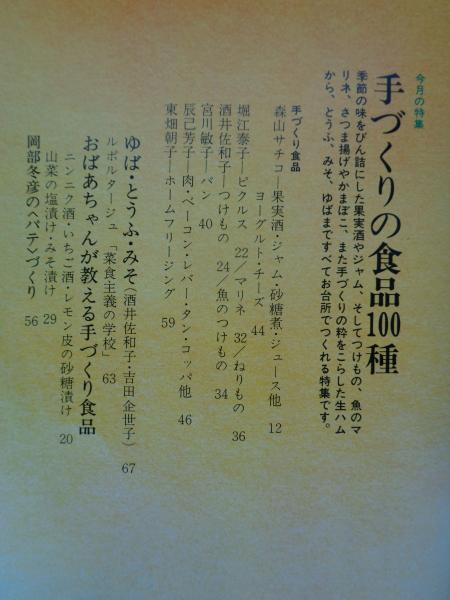 今月の特集
手づくりの食品100種
季節の味をびん詰にした果実酒やジャム、そしてつけもの、魚のマ
リネ、さつま揚げやかまぼこ、また手づくりの粋をこらした生ハム
から、とうふ、みそ、ゆばまですべてお台所でつくれる特集です。
手づくり食品
森山サチコ―果実酒・ジャム・砂糖煮・ジュース他 12
ヨーグルト・チーズ 44
堀江泰子―ピクルス 22/マリネ 32/ねりもの 36
酒井佐和子―つけもの 24/魚のつけもの 34
宮川敏子―パン 40
辰己芳子―肉・ベーコン・レバー・タン・コッパ他 46
東畑朝子―ホームフリージング 59
ゆば・とうふ・みそ(酒井佐和子・吉田企世子) 67
ルポルタージュ「菜食主義の学校」 63
おばあちゃんが教える手づくり食品
ニンニク酒・いちご酒・レモン皮の砂糖漬け 20
山菜の塩漬け・みそ漬け 29
岡部冬彦のヘバテンづくり 56